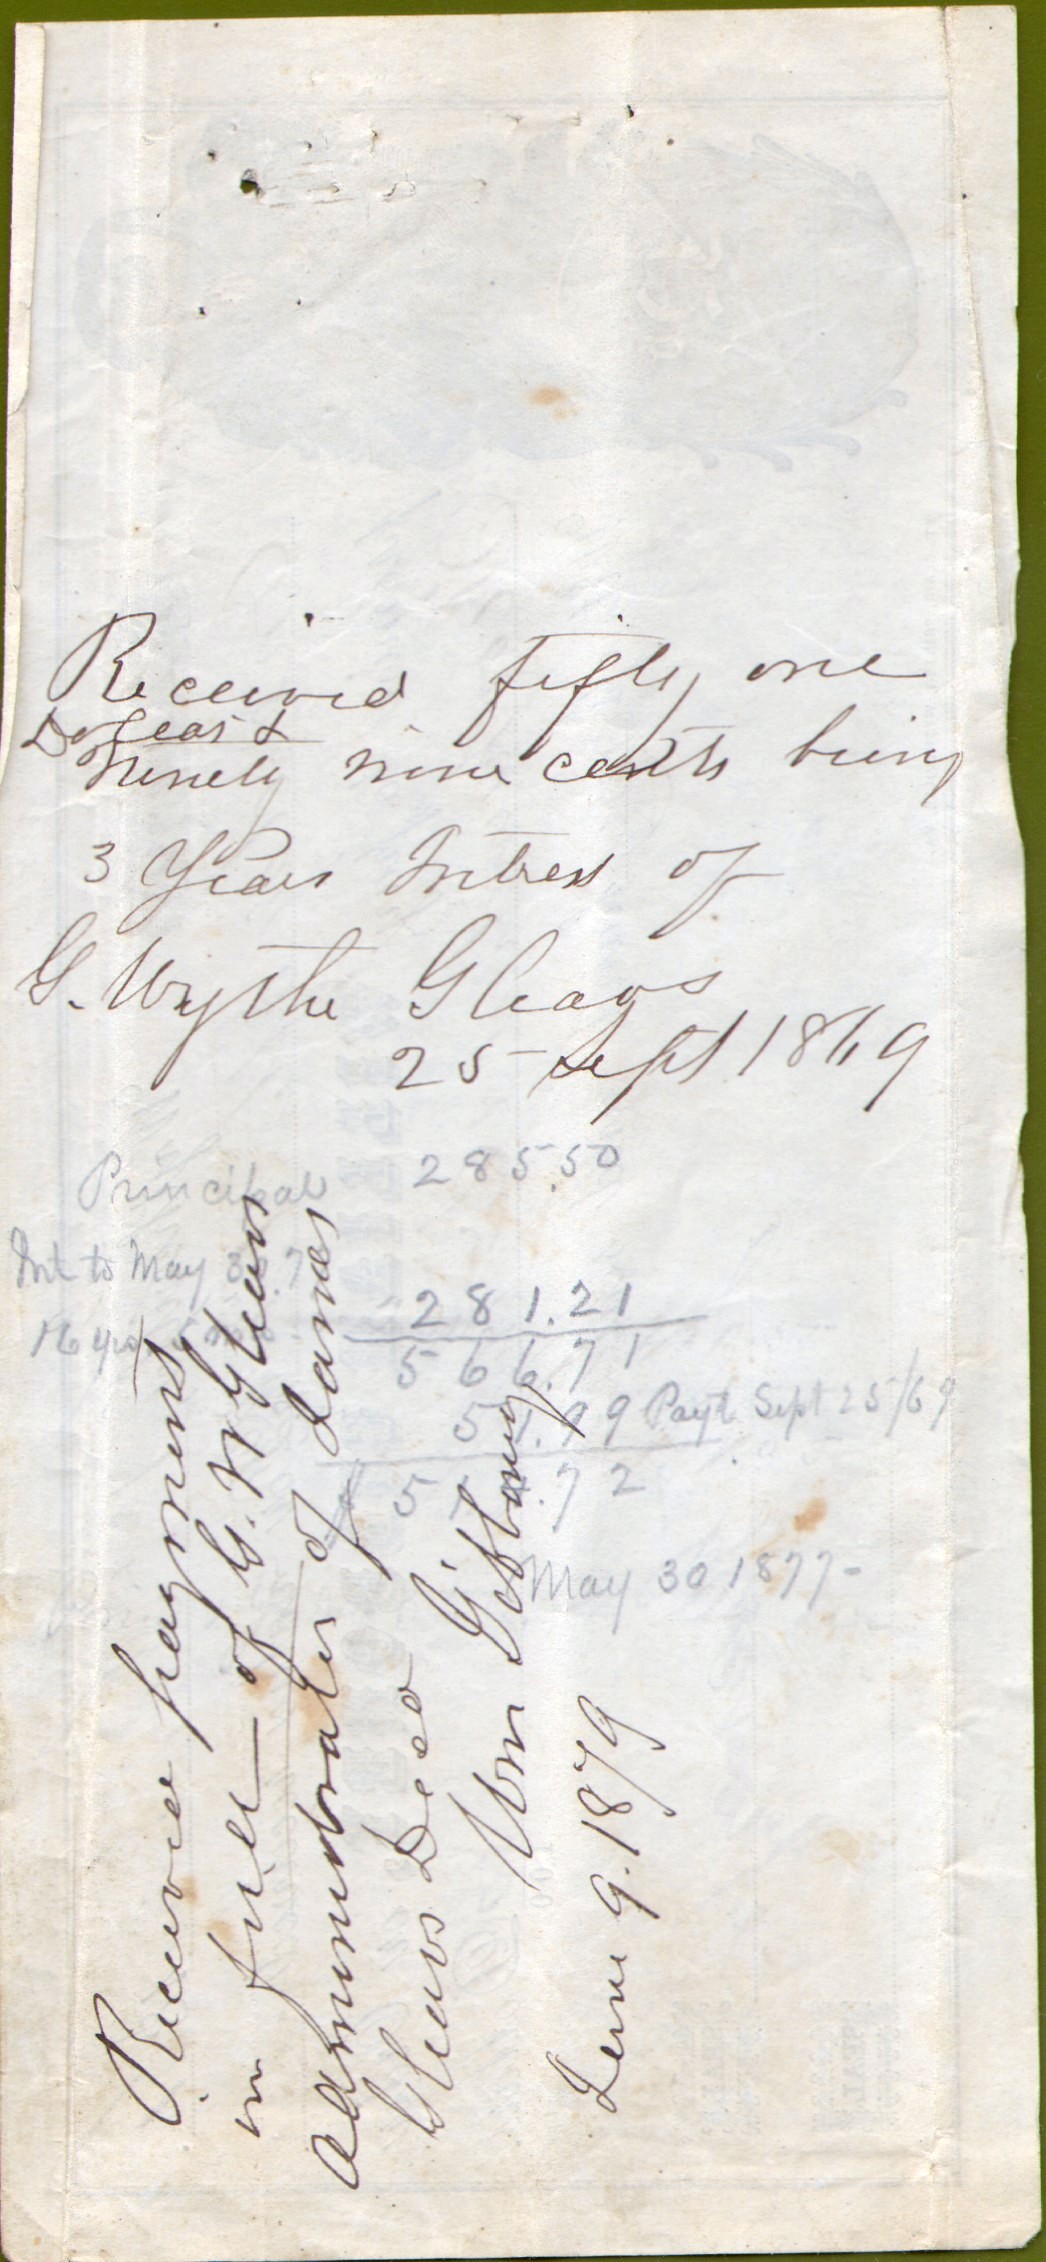 Received fifty one
Dolears &
Ninety nine cents being
3 Years Intress of
G. Wythe Gleavs
25 Sept 1869
Principal 285.50
Int to May 30 77
281.21
16 yrs
566.71
51.99 Payt Sept 25/69
5 .72
May 30 1877-
Received payment
in full of G. W Gleavs
Administrator of James
Gleavs Decd
Wm Gibboney
June 9. 1879